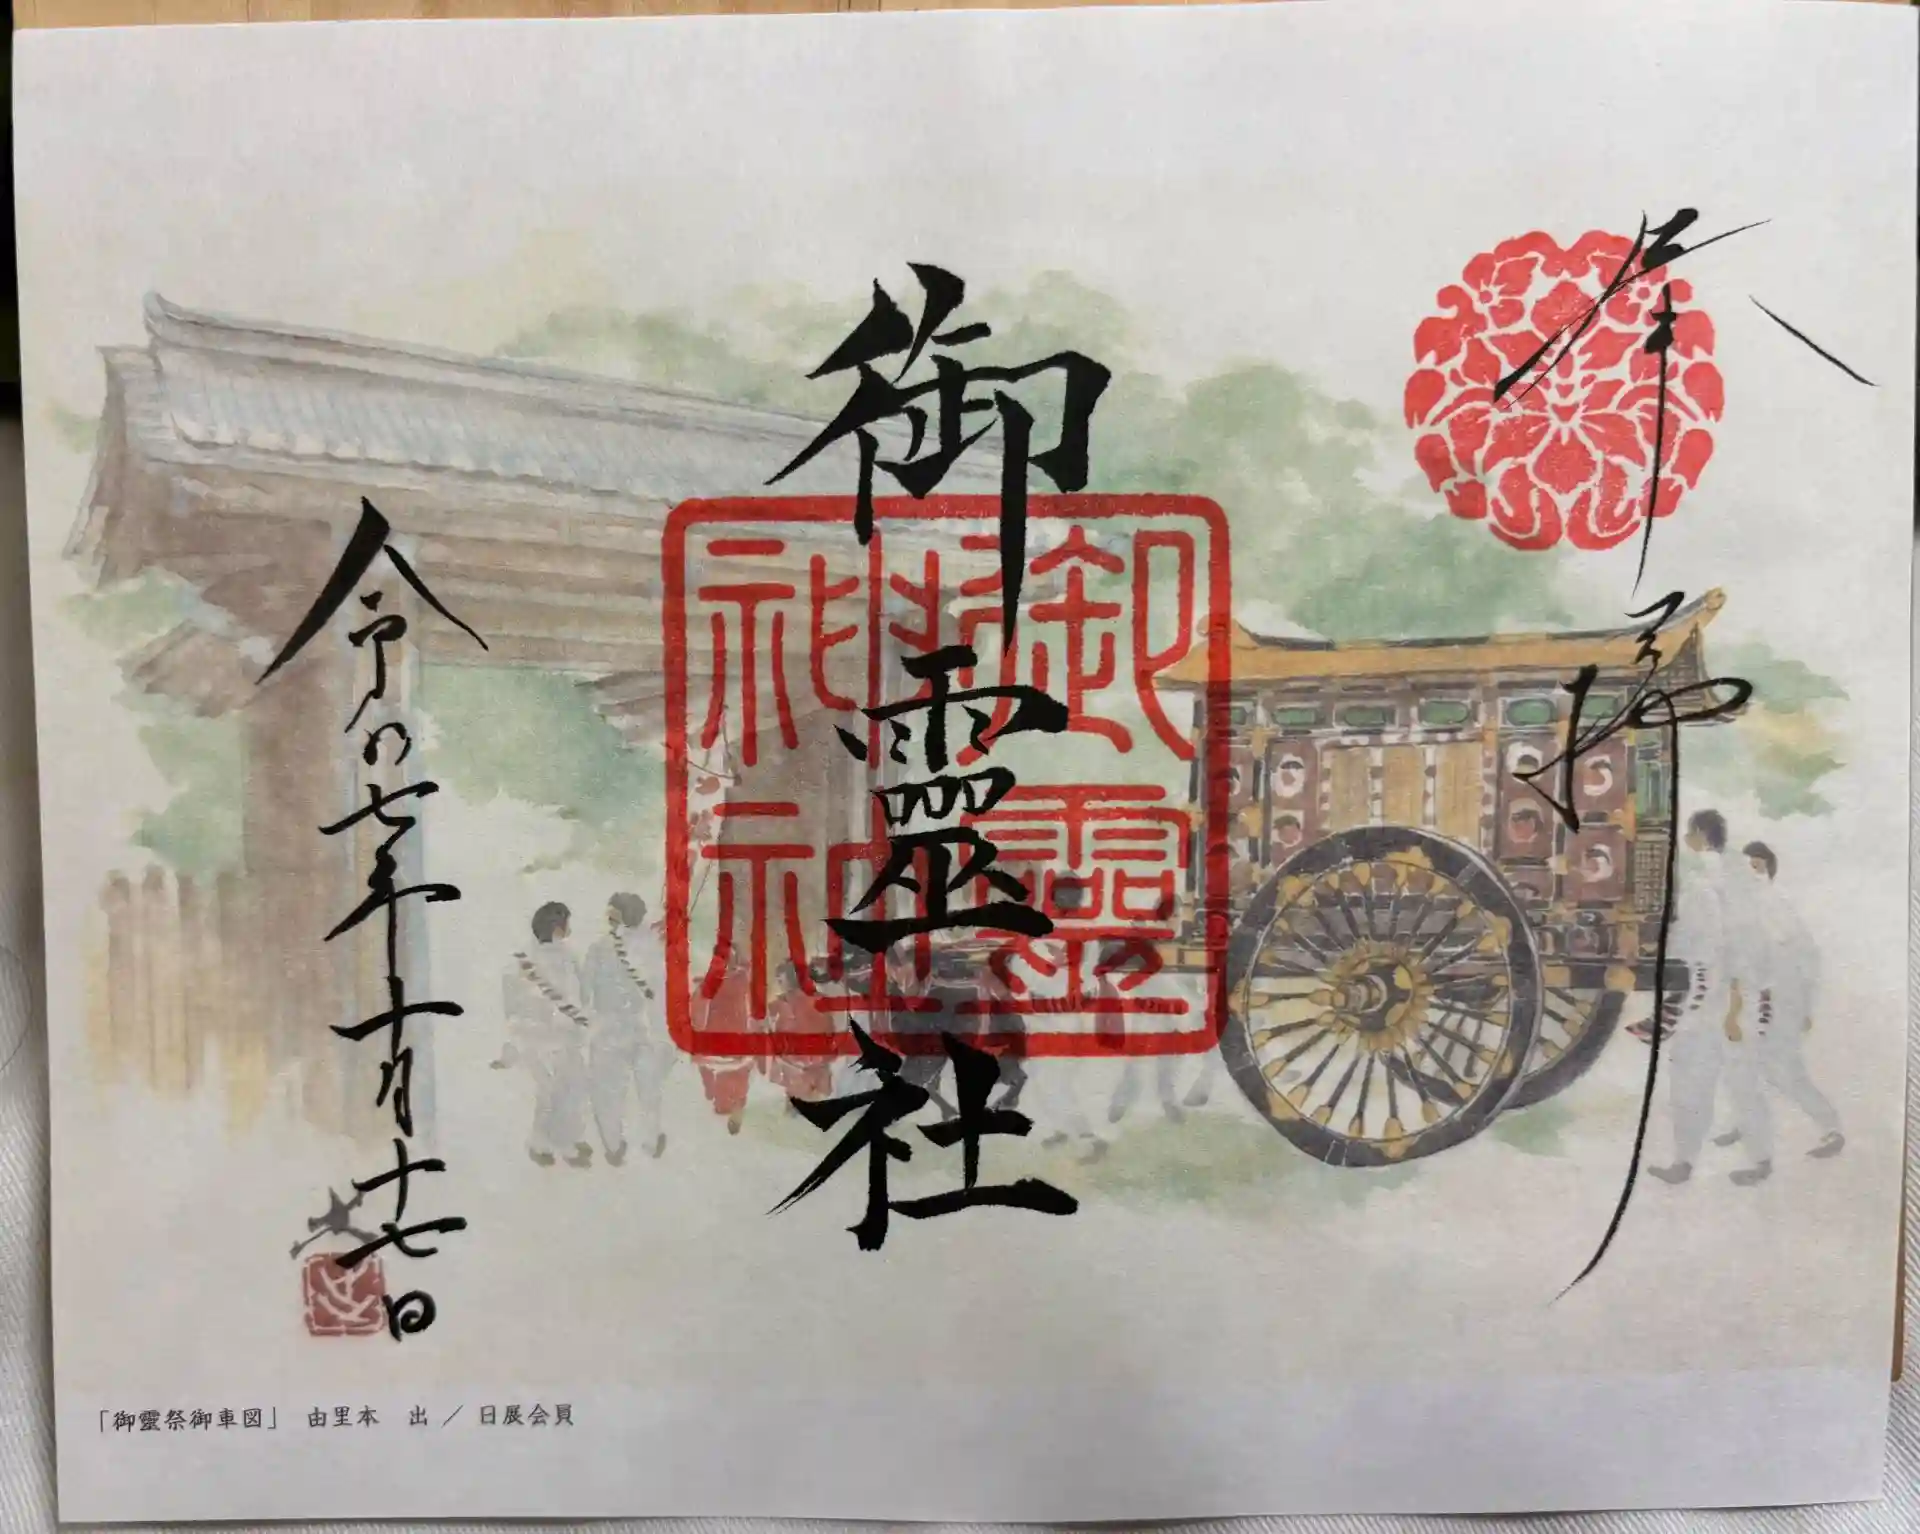 奉拝
御靈社
御靈神社
令和七年十月十七日
「御靈祭御車図」 由里本 出 / 日展会員